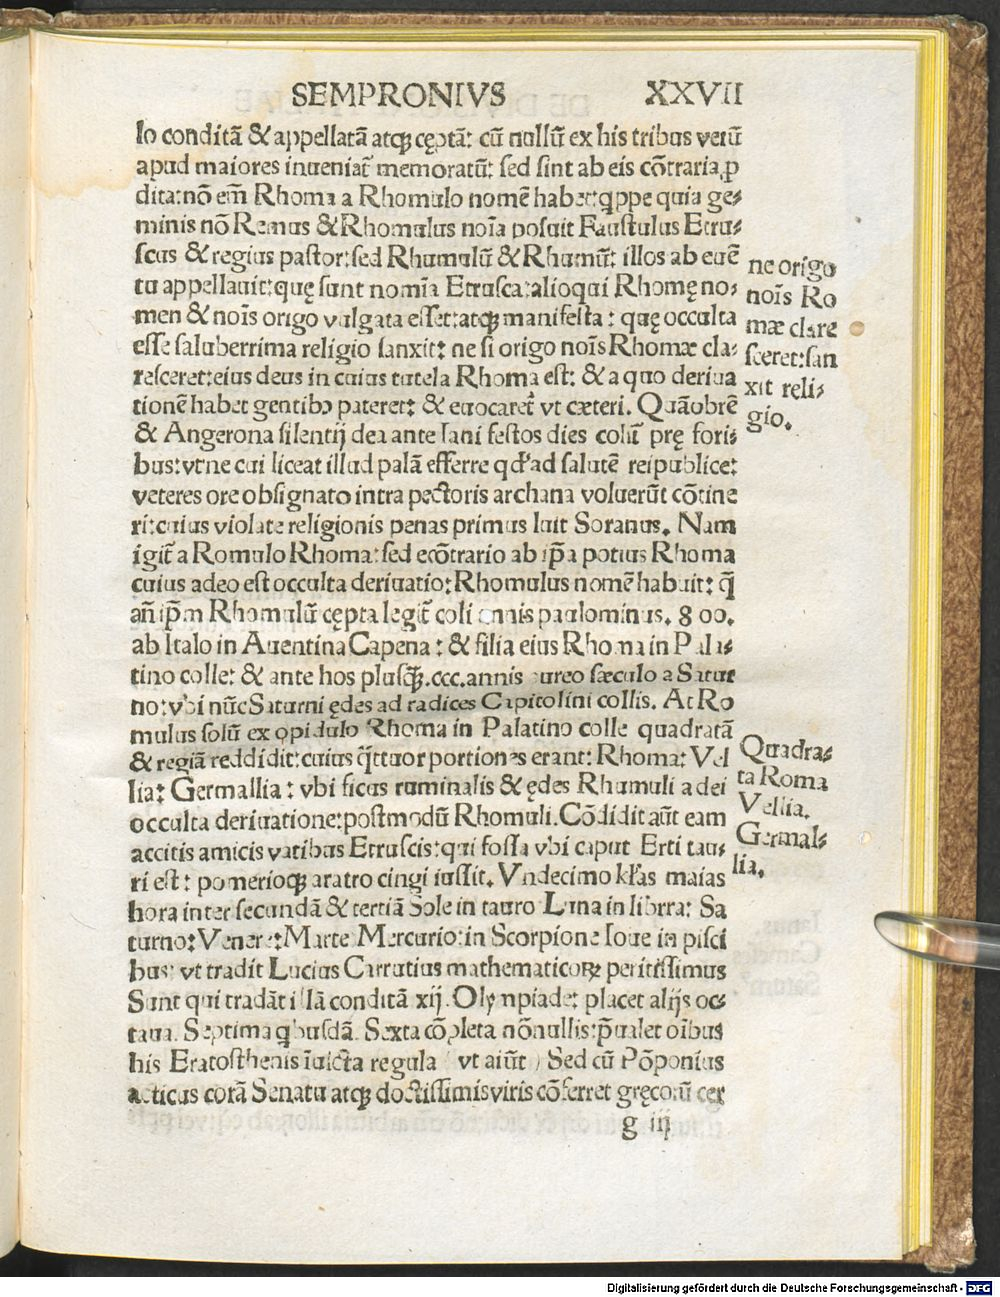 SEMPRONIVS XXVII
lo conditā & appellatā atq; cęptā: cū nullū ex his tribus verū
apud maiores inueniat᷑ memoratū: sed sint ab eis cōtraria ꝓ
dita: nō em̄ Rhoma a Rhomulo nomē habet: qppe quia ge⸗
minis nō Remus & Rhomulus noīa posuit Faustulus Etru⸗
scus & regius pastor: sed Rhumulū & Rhumū: illos ab euē
tu appellauit: quę sunt nomīa Etrusca: alioqui Rhomę no⸗
men & noīs origo vulgata esset: atq; manifesta: quę occulta
esse saluberrima religio sanxit: ne si origo noīs Rhomæ cla⸗
resceret: eius deus in cuius tutela Rhoma est: & a quo deriua
tionē habet gentibꝰ pateret: & euocaret᷑ vt cæteri. Quāobrē
& Angerona silentij dea ante Iani festos dies colit᷑ prę fori⸗
bus: vt ne cui liceat illud palā efferre qđ ad salutē reipublice:
veteres ore obsignato intra pectoris archana voluerūt cōtine
ri: cuius violate religionis penas primus luit Soranus. Nam
igit᷑ a Romulo Rhoma: sed ecōtrario ab ip̄a potius Rhoma
cuius adeo est occulta deriuatio: Rhomulus nomē habuit: q̄
añ ip̄m Rhomulū cępta legit᷑ coli annis paulominus. 800.
ab Italo in Auentina Capena: & filia eius Rhoma in Pala⸗
tino colle: & ante hos plusq̄; .ccc. annis aureo sæculo a Satur
no: vbi nūc Saturni ędes ad radices Capitolini collis. At Ro
mulus solū ex opidulo Rhoma in Palatino colle quadratā
& regiā reddidit: cuius q̄ttuor portiones erant: Rhoma: Vel
lia: Germallia: vbi ficus ruminalis & ędes Rhumuli a dei
occulta deriuatione: postmodū Rhomuli. Cōdidit aūt eam
accitis amicis vatibus Etruscis: qui fossa vbi caput Erti tau⸗
ri est: pomerioq; aratro cingi iussit. Vndecimo kl̄as maias
hora inter secundā & tertiā Sole in tauro Luna in librra: Sa
turno: Venere: Marte Mercurio: in Scorpione Ioue in pisci
bus: vt tradit Lucius Carrutius mathematicoꝝ peritissimus
Sunt qui tradāt illā conditā xij. Olympiade: placet alijs oc⸗
taua. Septima q̇busdā. Sexta cōpleta nōnullis: p̄ualet oībus
his Eratosthenis īuicta regula ( vt aiūt ) Sed cū Pōponius
acticus corā Senatu atq; doctissimis viris cōferret gręcorū cer
g iij
ne origo
noīs Ro
mæ clare
sceret: san
xit reli⸗
gio.
Quadra⸗
ta Roma
Vellia.
Germal⸗
lia.
Digitalisierung gefördert durch die Deutsche Forschungsgemeinschaft - DFG